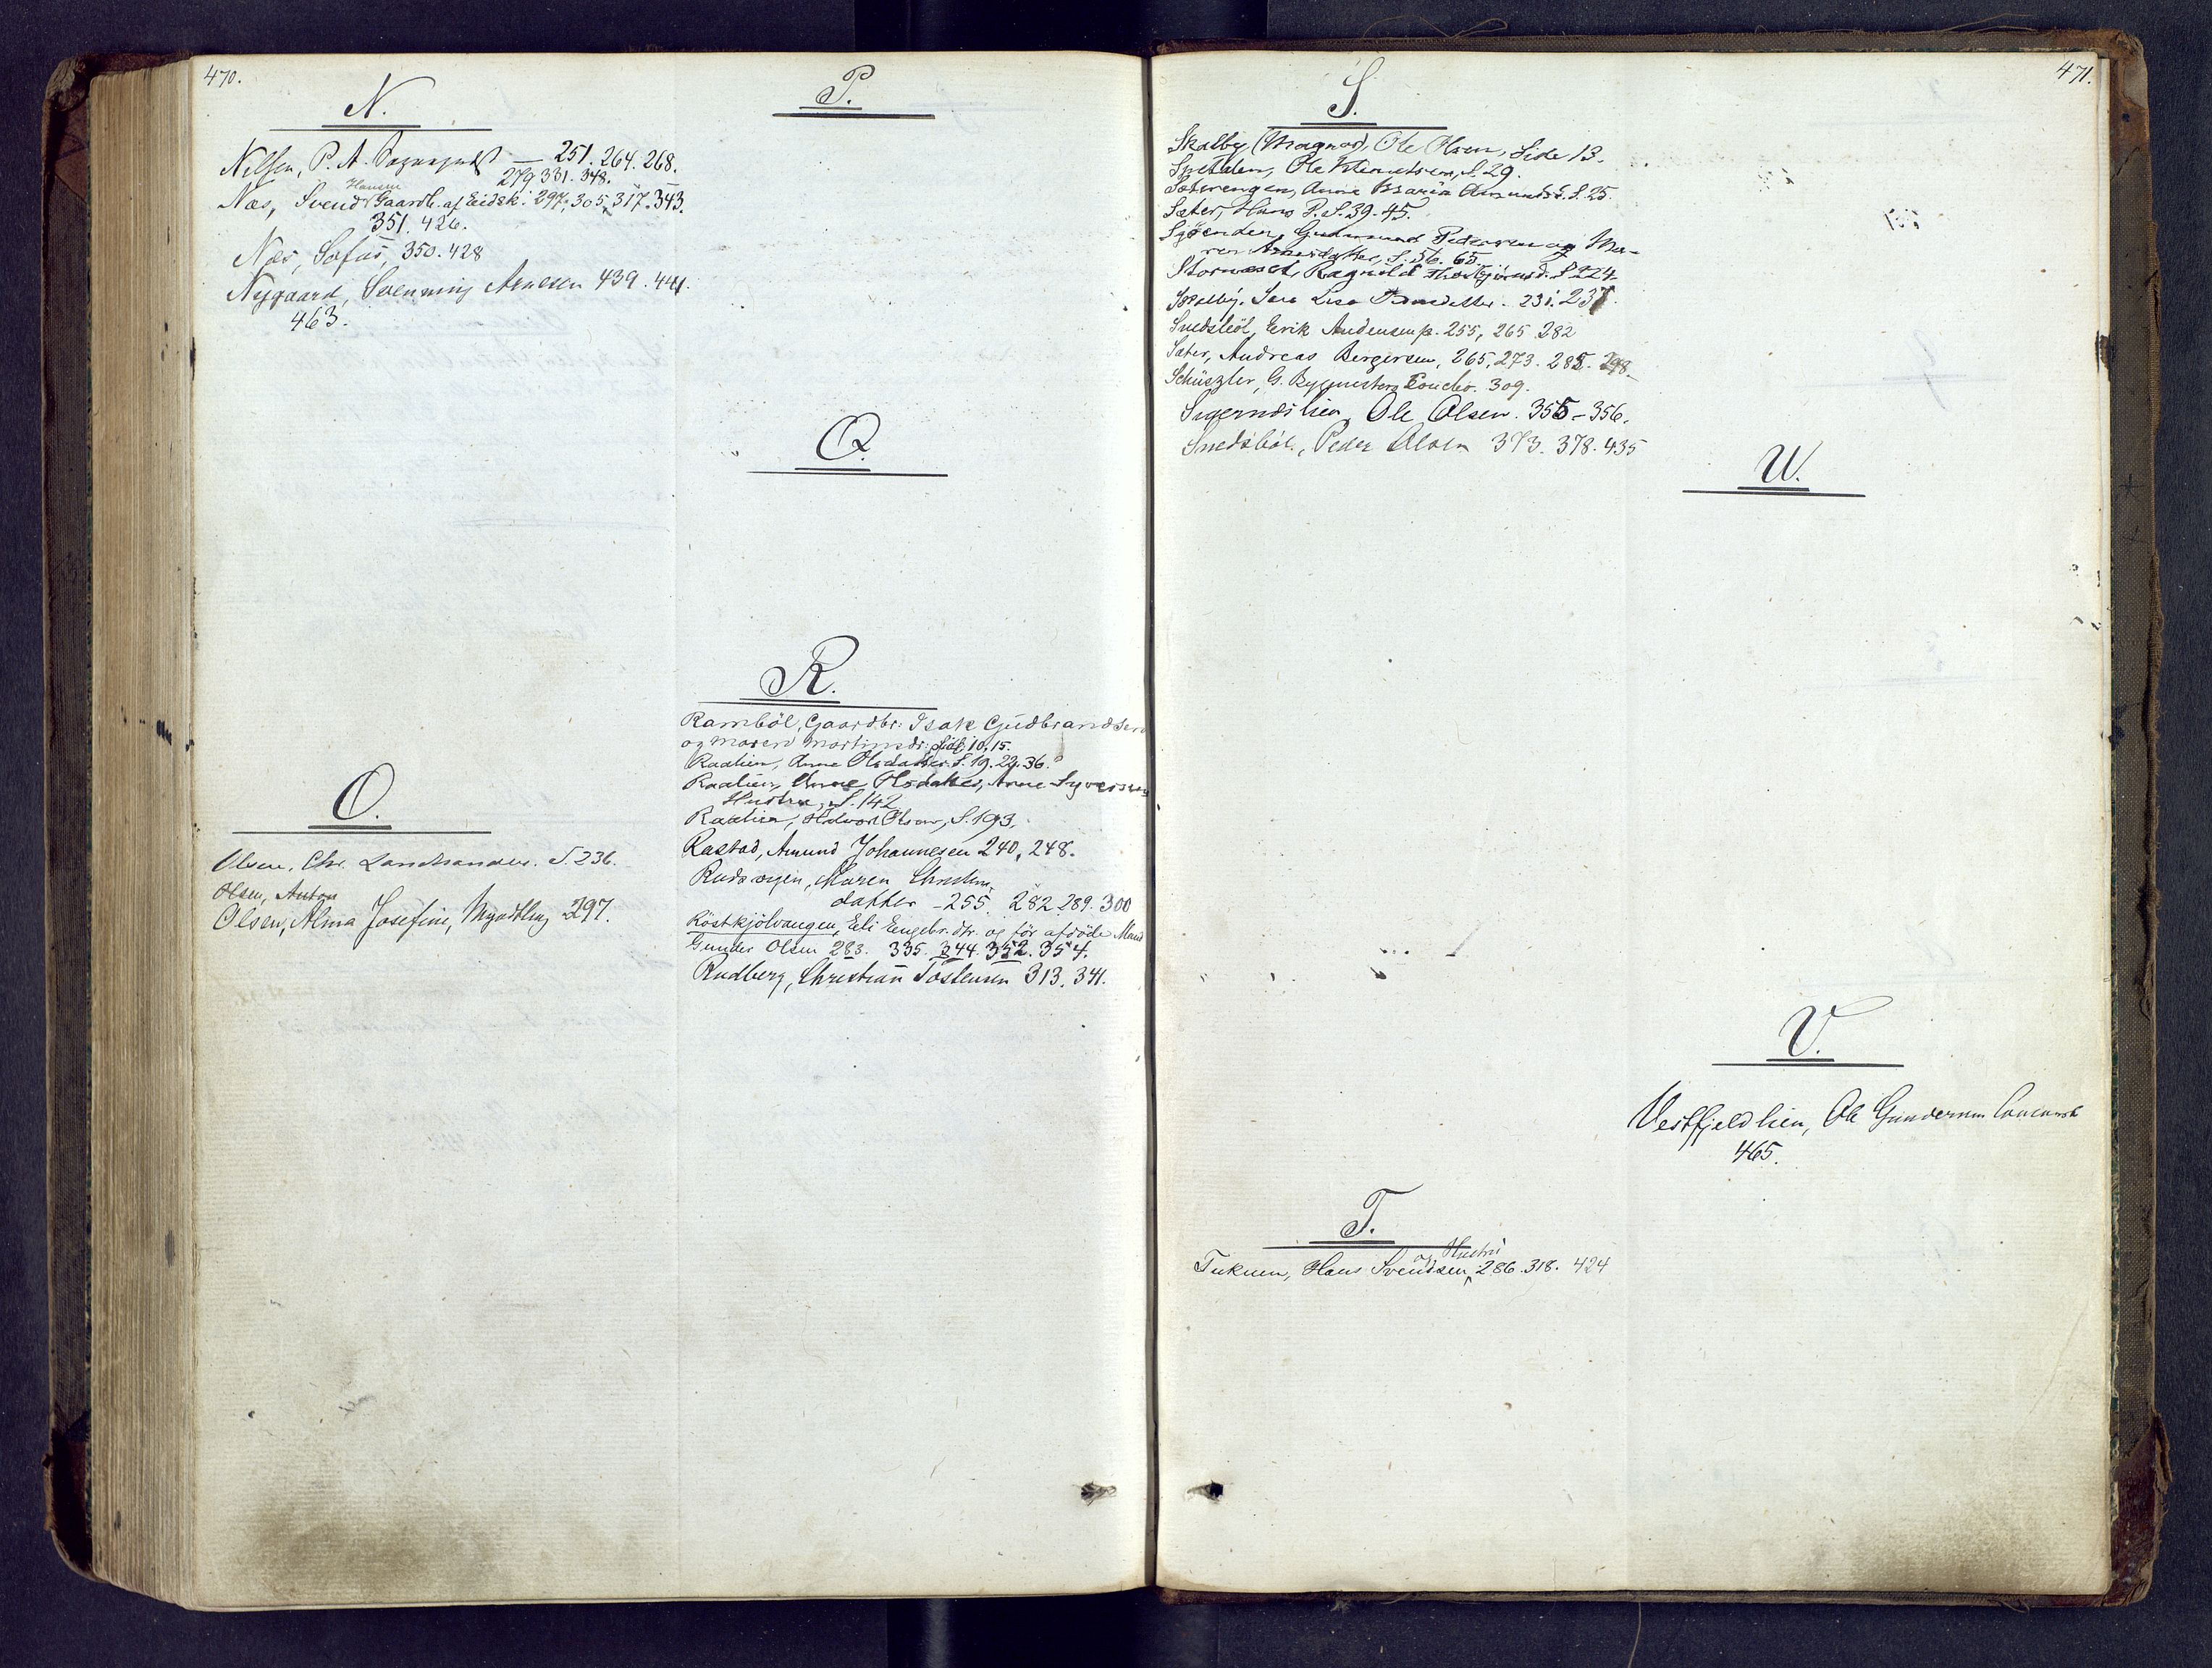 470.
N.
Nilsen, P. A. — 251. 264. 268.
279 331. 348.
Hansen
Næs, Svend Gaardb. af Eidsk. 297, 305, 317. 343.
351. 426.
Næs, Sofus, 350. 428
Nygaard, Svenning Arnesen 439. 441.
463.
O.
Olsen, Chr. Landhandler. S. 236.
Olsen, Anton
Olsen, Alma Josefine, Myndtling 297.
P.
Q.
R.
Ramböl, Gaardbr: Isak Gudbrandsen
og Maren Martinsdr: Side 10, 15.
Raalien, Anne Olsdatter. S. 19. 22. 36.
Raalien, Anne Olsdatter, Arne Syversens
Hustru, S. 142
Raalien, Halvor Olsen, S. 193.
Rastad, Amund Johannesen 240, 248.
Rudsvegen, Maren Christians
datter - 255. 282 289. 300
Röstkjölvangen, Eli Engebr. dtr. og før afdöde Mand
Gunder Olsen 283. 335. 344. 352. 354.
Rudberg, Christian Tostensen 313. 341.
471.
S.
Skalby (Magnor), Ole Olsen, Side 13.
Spetalen, Ole S. 29.
Sæterengen, Anne Maria Amundsd. S. 25.
Sæter, Hans P. S. 39. 45.
Sjøenden, Gudmund Pedersen og Ma-
ren Arnesdatter, S. 56. 65.
Stornæset, Ragnild Thorbjörnsd. S 224.
Skalby, Sara Lisa 231. 237.
Snedsböl, Erik Andensen p. 255, 265 282
Sæter, Andreas Bergersen, 265, 273. 285. 298.
Schüszler, G. Bygmesters Concbo. 309.
Sigernæslien, Ole Olsen. 355 - 356.
Snedsböl, Peder Olsen 373. 378. 435
T.
og Hustru
Tuknen, Hans Svendsen, 286. 318. 424
U.
V.
Vestfjeldlien, Ole Gundersen Concurs
465.